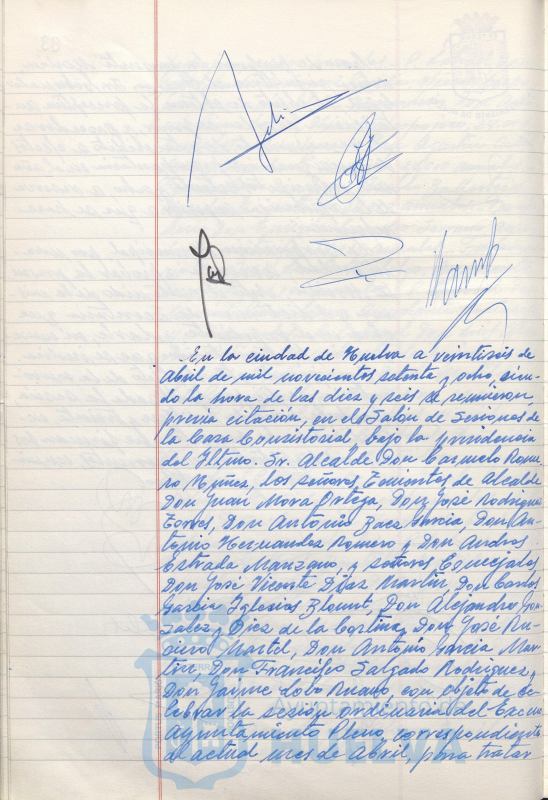 En la ciudad de Huelva a veintiseis de
Abril de mil novecientos setenta y ocho, sien-
do la hora de las diez y seis se reunieron,
previa citación, en el Salón de Sesiones de
la Casa Consistorial, bajo la presidencia
del Iltmo. Sr. Alcalde Don Carmelo Rome-
ro Núñez, los señores Tenientes de Alcalde
Don Juan Mora Ortega, Don José Rodríguez
Torres, Don Antonio Baez García, Don An-
tonio Hernandez Romero y Don Andrés
Estrada Manzano, y señores Concejales
Don José Vicente Díaz Martín, Don Carlos
García Iglesias Blount, Don Alejandro Gon-
zalez y Diez de la Cortina, Don José Ru-
Martel, Don Antonio García Mar-
tín, Don Francisco Salgado Rodríguez,
Don Jaime Lobo Ruano, con objeto de ce-
lebrar la sesión ordinaria del Excmo
Ayuntamiento Pleno, correspondiente
al actual mes de Abril, para tratar
Ayuntamiento de
HUELVA